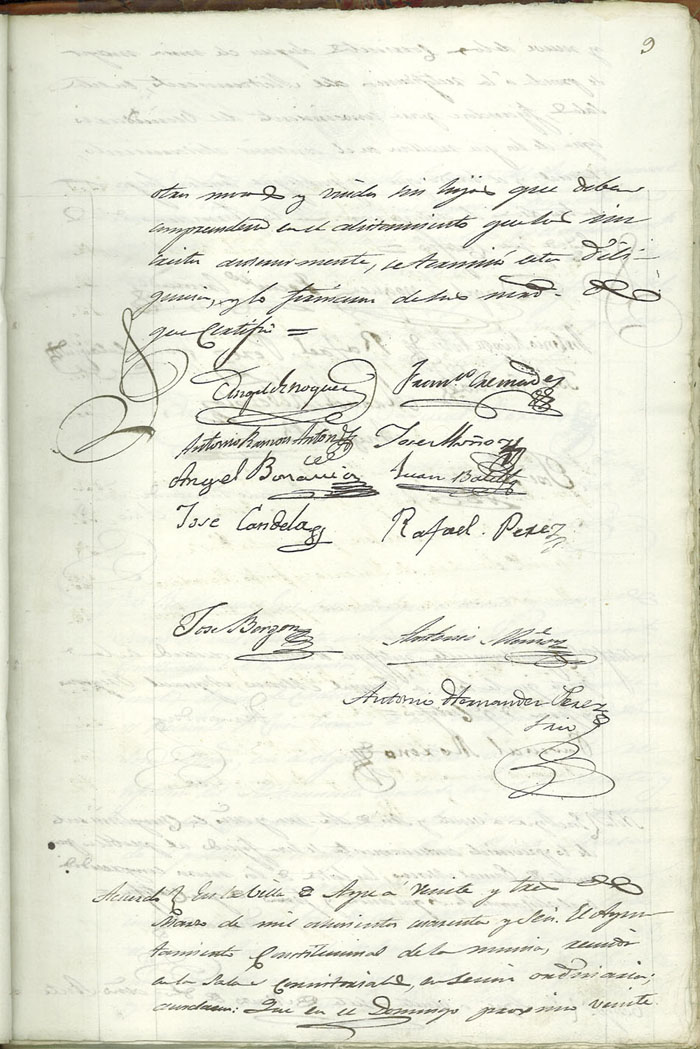 9
otros mozos y viudos sin hijos que deban
comprenderse en el alistamiento que los
actualmente, se terminó esta Dili-
gencia, y lo firmaron de sus mercd. de
que Certifico =
Angel Enoquer Franco Cremades
Antonio Ramon Anton José Muñoz
Angel Bonavia Juan Botella
Jose Candela Rafael Perez
Jose Borgon Antonio Muñoz
Antonio Hernandez Perez
Srio
Acuerdo En la Villa de Aspe a veinte y tres de
Marzo de mil ochocientos cuarenta y seis. El Ayun-
tamiento Constitucional de la misma, reunido
en la Sala Consistorial, en Sesion ordinaria;
acordaron: Que en el Domingo proximo veinte